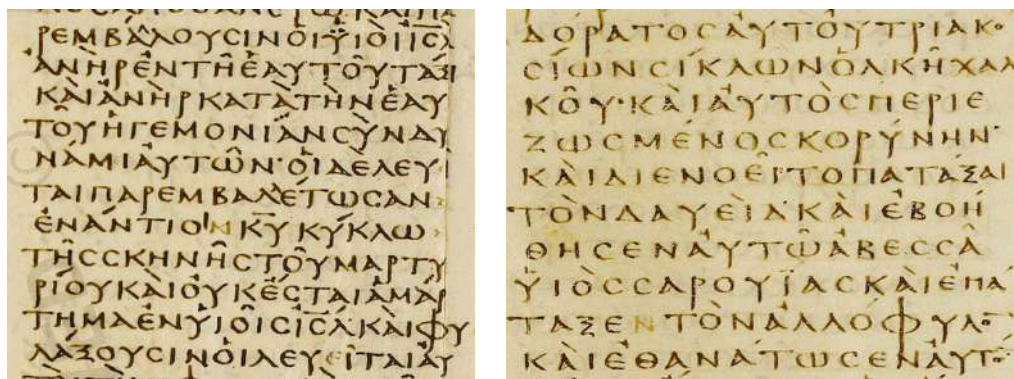 ΡΕΜΒΑΛΟΥϹΙΝΟΙΥΙΟΙΙϹΛ
ΑΝΗΡΕΝΤΗΕΑΥΤΟΥΤΑΞΙ
ΚΑΙΑΝΗΡΚΑΤΑΤΗΝΕΑΥ
ΤΟΥΗΓΕΜΟΝΙΑΝϹΥΝΔΥ
ΝΑΜΙΑΥΤΩΝ·ΟΙΔΕΛΕΥΙ
ΤΑΙΠΑΡΕΜΒΑΛΕΤΩϹΑΝ
ΕΝΑΝΤΙΟΝΚΥΚΥΚΛΩ
ΤΗϹϹΚΗΝΗϹΤΟΥΜΑΡΤΥ
ΡΙΟΥΚΑΙΟΥΚΕϹΤΑΙΑΜΑΡ
ΤΗΜΑΕΝΥΙΟΙϹΙϹΛΚΑΙΦΥ
ΛΑΞΟΥϹΙΝΟΙΛΕΥΕΙΤΑΙΑΥ
ΔΟΡΑΤΟϹΑΥΤΟΥΤΡΙΑΚΟ
ϹΙΩΝϹΙΚΛΩΝΟΛΚΗΧΑΛ
ΚΟΥ·ΚΑΙΑΥΤΟϹΠΕΡΙΕ
ΖΩϹΜΕΝΟϹΚΟΡΥΝΗΝ·
ΚΑΙΔΙΕΝΟΕΙΤΟΠΑΤΑΞΑΙ
ΤΟΝΔΑΥΕΙΔΚΑΙΕΒΟΗ
ΘΗϹΕΝΑΥΤΩΑΒΕϹϹΑ
ΥΙΟϹϹΑΡΟΥΪΑϹΚΑΙΕΠΑ
ΤΑΞΕΝΤΟΝΑΛΛΟΦΥΛΟ
ΚΑΙΕΘΑΝΑΤΩϹΕΝΑΥΤΟ